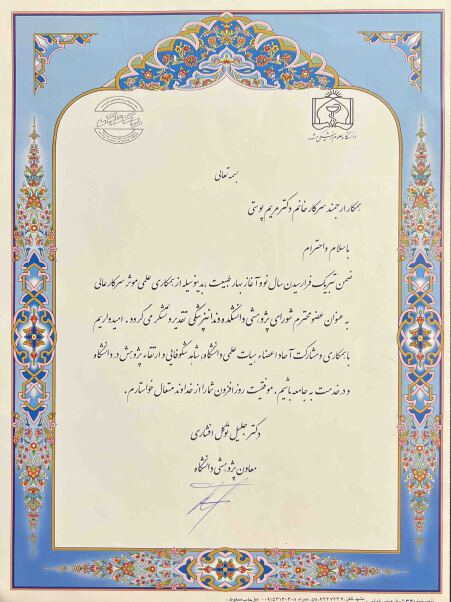 دانشگاه علوم پزشکی مشهد
بسمه تعالی
همکار ارجمند سرکار خانم دکتر مریم پوستی
با سلام و احترام
ضمن تبریک فرارسیدن سال نو و آغاز بهار طبیعت بدینوسیله از همکاری علمی موثر سرکارعالی
به عنوان عضو محترم شورای پژوهشی دانشکده دندانپزشکی تقدیر و تشکر می گردد. امیدواریم
با همکاری و مشارکت آحاد اعضاء هیات علمی دانشگاه، شاهد شکوفایی و ارتقاء پژوهش در دانشگاه
و در خدمت به جامعه باشیم. موفقیت روزافزون شما را از خداوند متعال خواستارم.
دکتر جلیل توکل افشاری
معاون پژوهشی دانشگاه